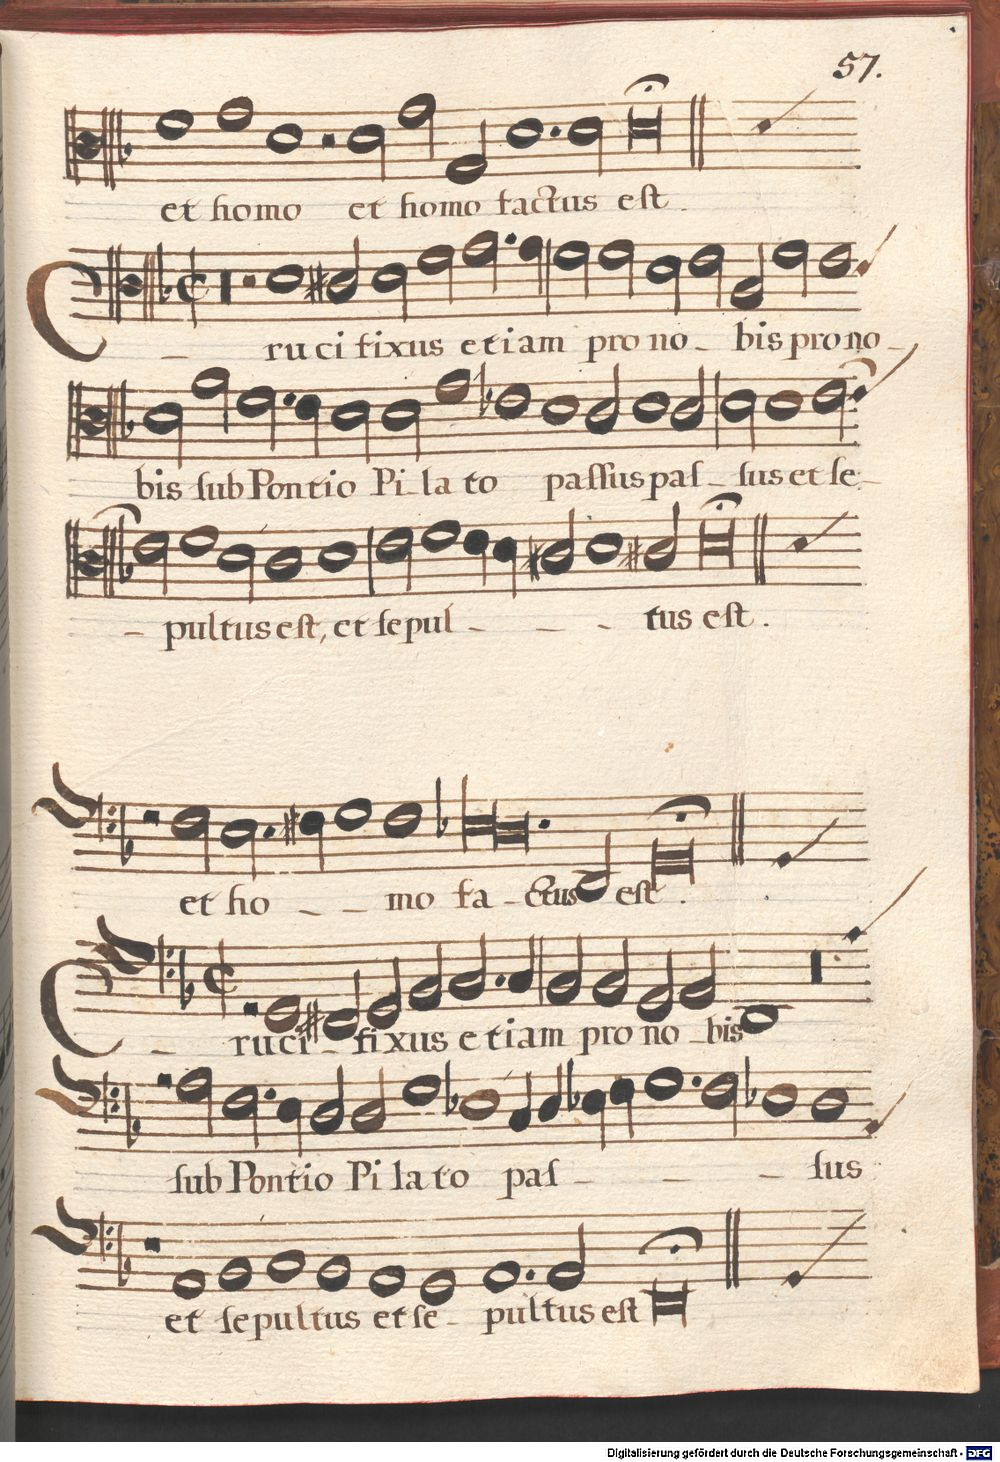 57.
et homo et homo factus eſt.
Cruci fixus etiam pro no- bis pro no-
bis ſub Pontio Pi-la to paſſus paſ- ſus et ſe-
-pultus eſt, et ſepul - - - tus eſt.
et ho - - mo fa-ctus eſt.
Cruci- fixus etiam pro no-bis
ſub Pontio Pi la to paſ - - - ſus
et ſepultus et ſe- pultus eſt
Digitalisierung gefördert durch die Deutsche Forschungsgemeinschaft - DFG